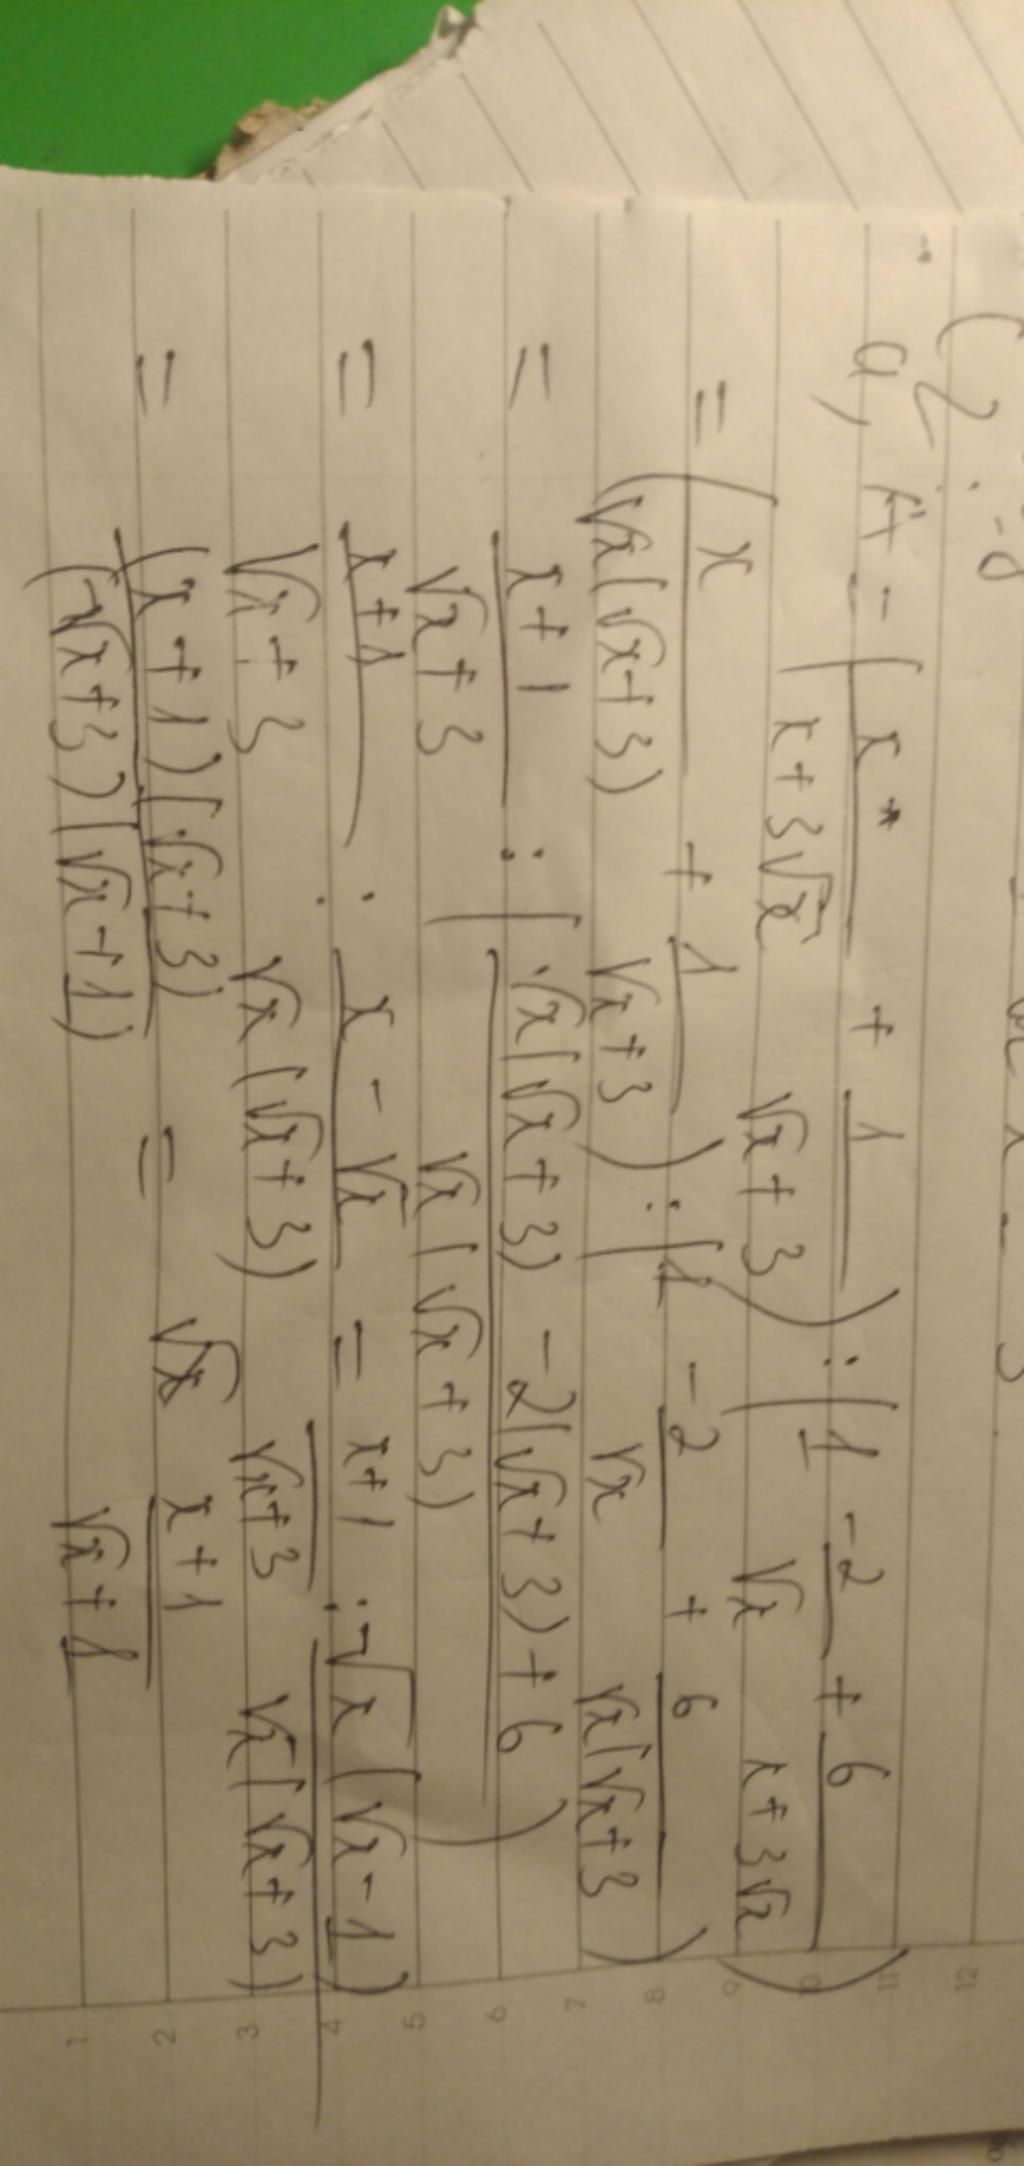 a, A = ( x / (x + 3√x) + 1 / (√x + 3) ) : ( 1 - 2 / √x + 6 / (x + 3√x) )
= ( x / (√x(√x+3)) + 1 / (√x+3) ) : ( 1 - 2 / √x + 6 / (√x(√x+3)) )
= (x+1) / (√x+3) : ( (√x(√x+3) - 2(√x+3) + 6) / (√x(√x+3)) )
= (x+1) / (√x+3) : (x - √x) / (√x(√x+3)) = (x+1) / (√x+3) : √x(√x-1) / (√x(√x+3))
= (x+1)(√x+3) / ((√x+3)(√x+1)) = (x+1) / (√x+1)